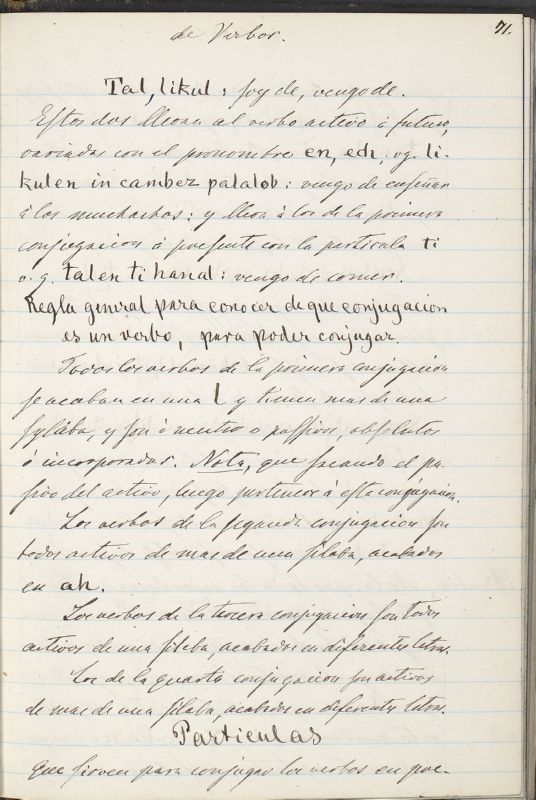 71.
de Verbos.
Tal, likul: soy de, vengo de.
Estos dos llevan al verbo activo à futuro,
variados con el pronombre en, ech, vg. li-
kulen in cambez palalob: vengo de enseñar
à los muchachos: y lleva à los de la primera
conjugacion à presente con la particula ti
v. g. talen ti hanal: vengo de comer.
Regla general para conocer de que conjugacion
es un verbo, para poder conjugar.
Todos los verbos de la primera conjugacion
se acaban en una l y tienen mas de una
sylaba, y son ò neutros o passivos, absolutos
ò incorporados. Nota, que sacando el pa-
sivo del activo, luego pertenece à esta conjugacion.
Los verbos de la segunda conjugacion son
todos activos de mas de una silaba, acabados
en ah.
Los verbos de la tercera conjugacion son todos
activos de una silaba, acabados en diferentes letras.
Los de la quarta conjugacion son activos
de mas de una silaba, acabados en diferentes letras.
Particulas
que sirven para conjugar los verbos en pre-